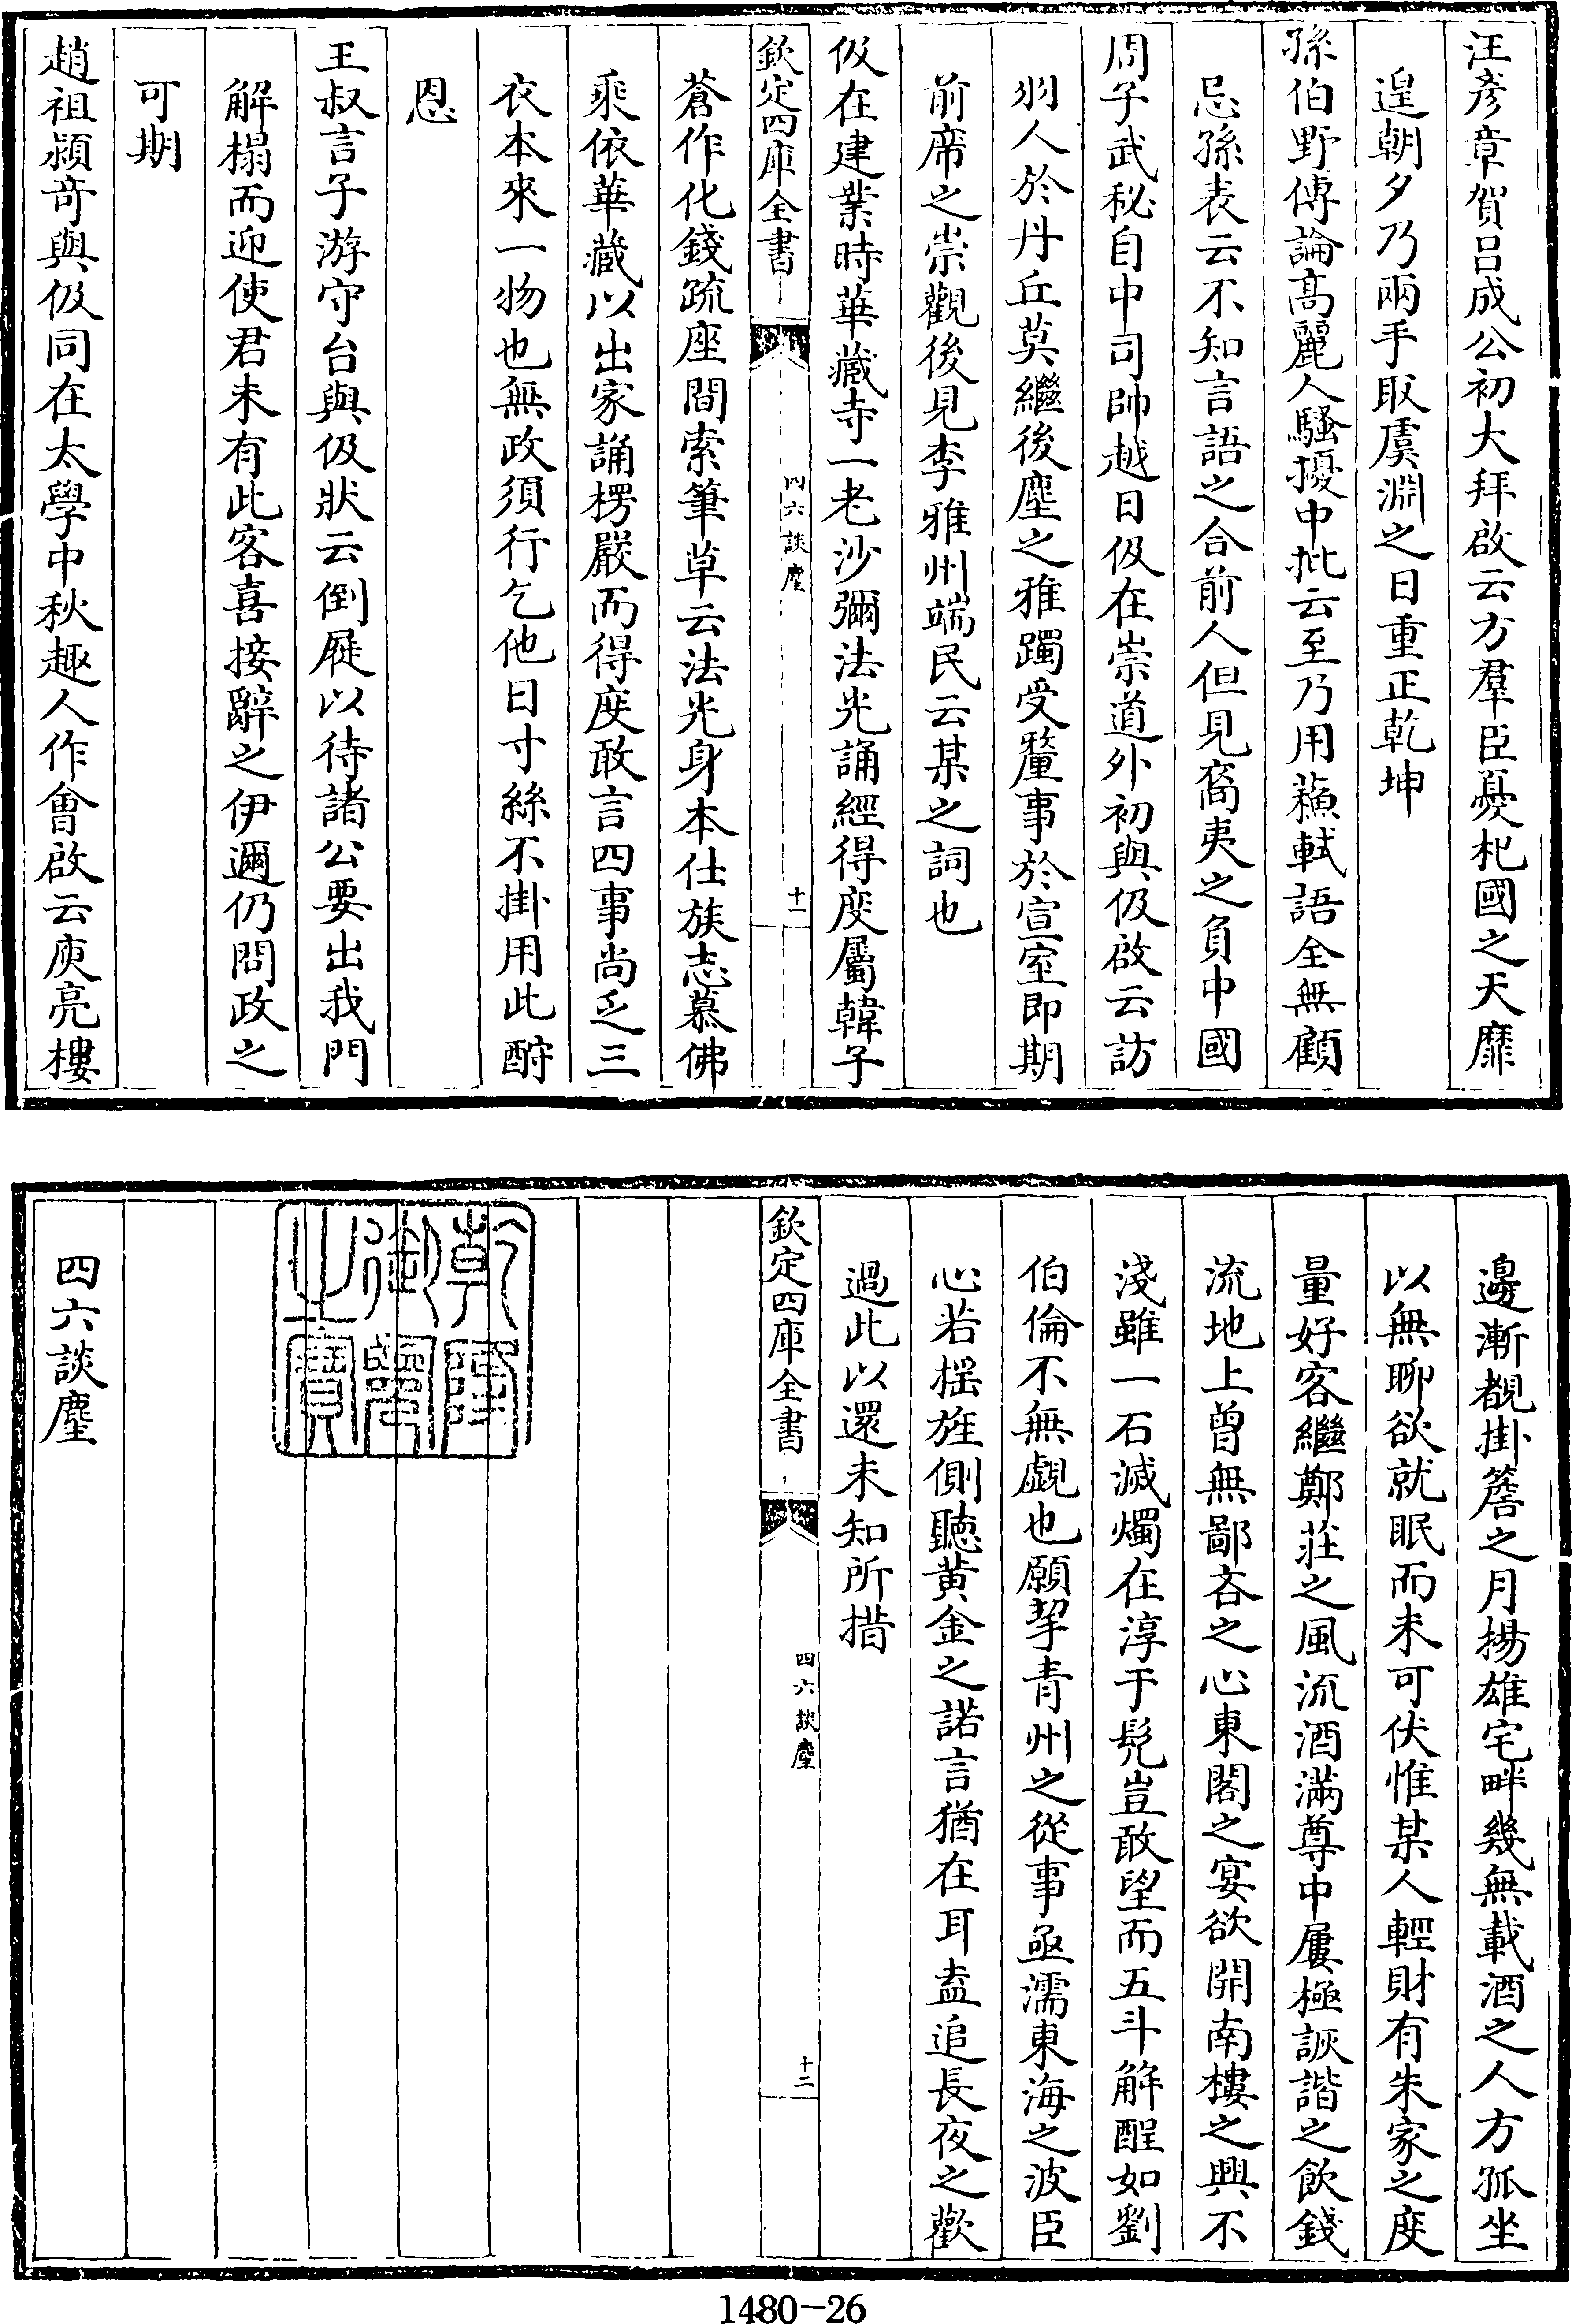 汪彦章賀吕成公初大拜啟云方羣臣憂杞國之天靡
遑朝夕乃兩手取虞淵之日重正乾坤
孫伯野傅論髙麗人騷擾中批云至乃用蘓軾語全無顧
忌孫表云不知言語之合前人但見裔夷之負中國
周子武秘自中司帥越日伋在崇道外初與伋啟云訪
羽人於丹丘莫繼後塵之雅躅受釐事於宣室即期
前席之崇觀後見李雅州端民云某之詞也
伋在建業時華藏寺一老沙彌法光誦經得度屬韓子
欽定四庫全書
四六談麈
十一
蒼作化錢疏座間索筆草云法光身本仕族志慕佛
乘依華藏以出家誦楞嚴而得度敢言四事尚乏三
衣本來一物也無政須行乞他日寸絲不掛用此酧
恩
王叔言子游守台與伋狀云倒屣以待諸公要出我門
解榻而迎使君未有此客喜接辭之伊邇仍問政之
可期
趙祖潁竒與伋同在太學中秋趣人作會啟云庾亮樓
邊漸覩掛簷之月揚雄宅畔幾無載酒之人方孤坐
以無聊欲就眠而未可伏惟某人輕財有朱家之度
量好客繼鄭莊之風流酒滿尊中屢極詼諧之飲錢
流地上曾無鄙吝之心東閣之宴欲開南樓之興不
淺雖一石滅燭在淳于髡豈敢望而五斗解酲如劉
伯倫不無覷也願挈青州之從事亟濡東海之波臣
心若揺旌側聽黄金之諾言猶在耳盍追長夜之歡
過此以還未知所措
欽定四庫全書
四六談麈
十二
乾隆
御覽
之寶
四六談麈
1480-26